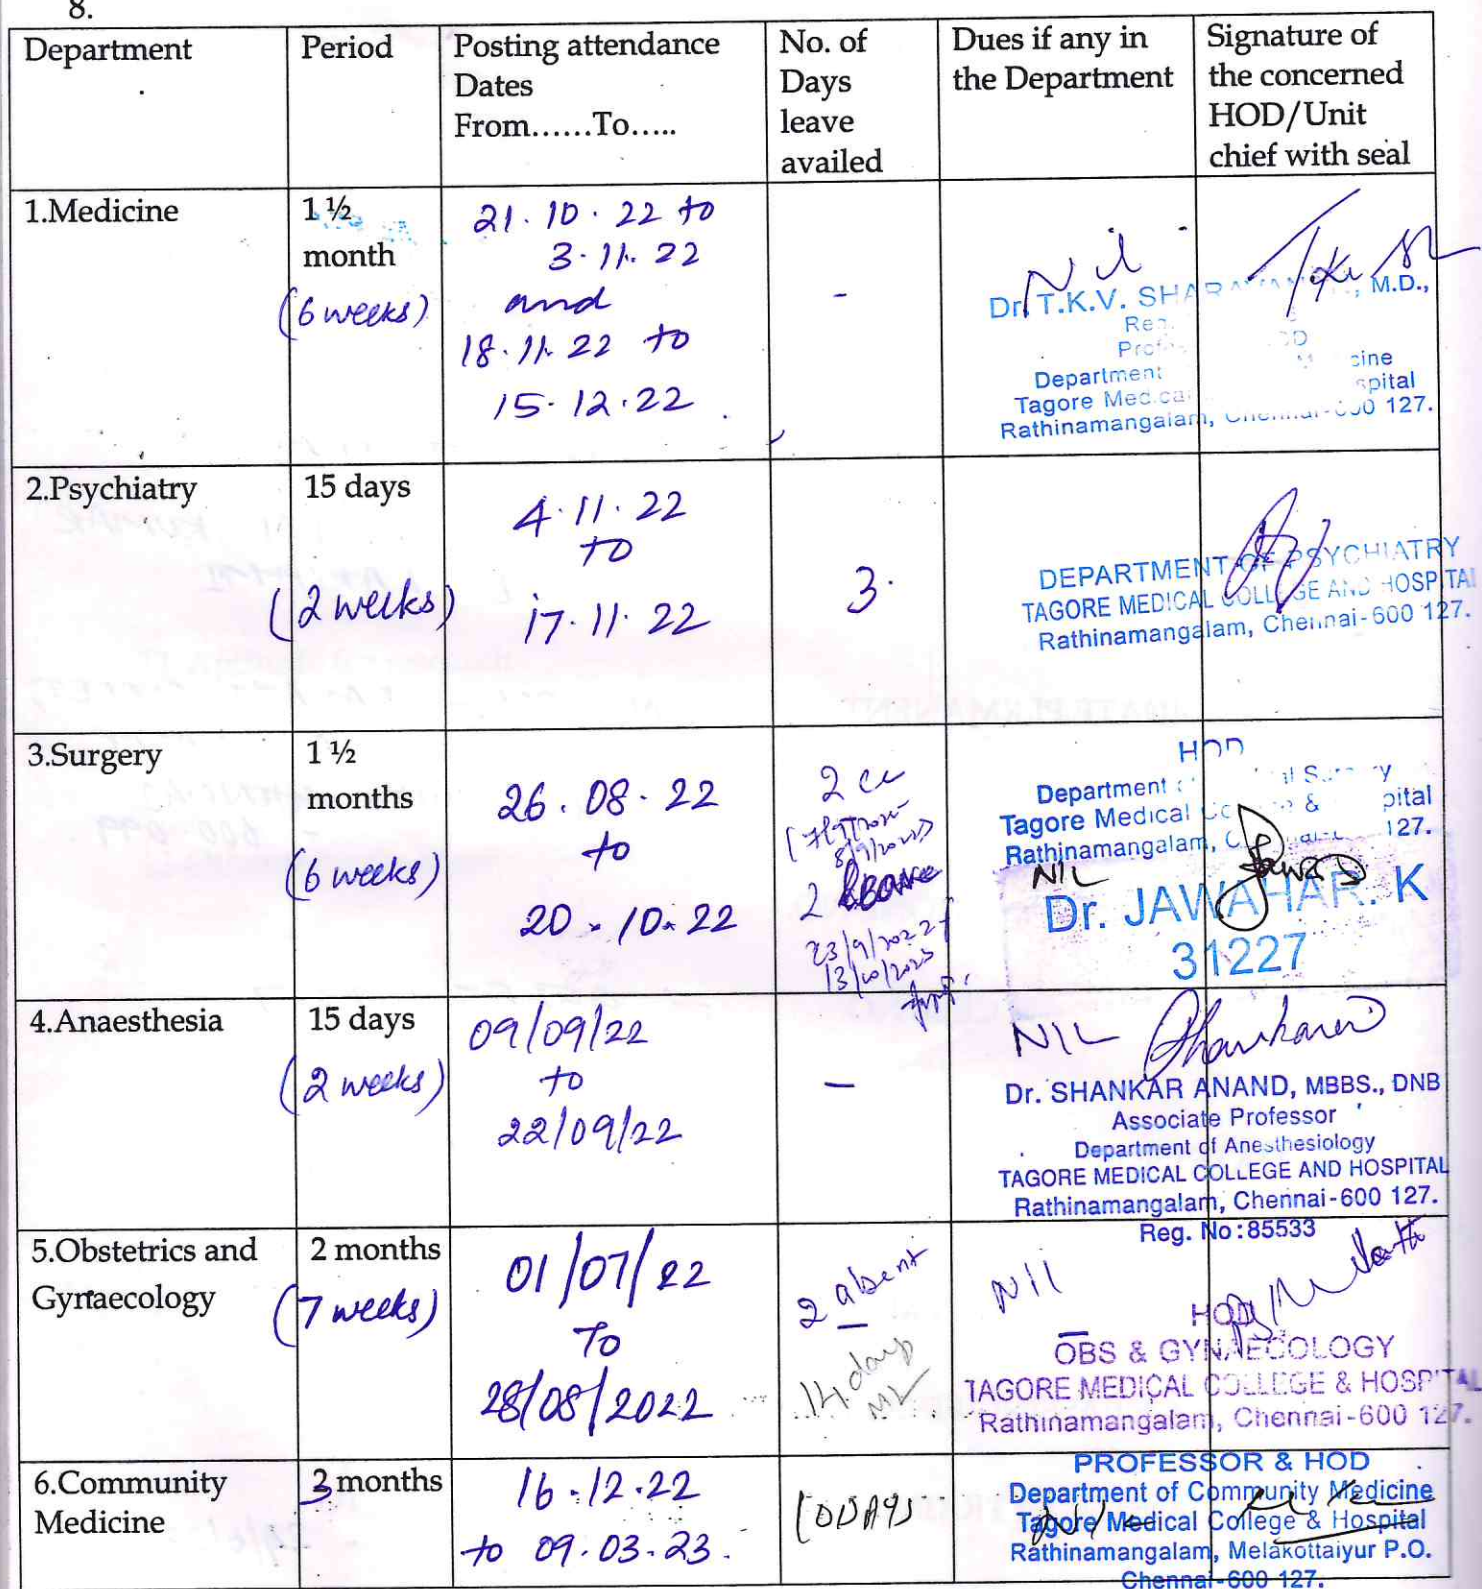 8.
Department
Period
Posting attendance
Dates
From......To.....
No. of
Days
leave
availed
Dues if any in
the Department
Signature of
the concerned
HOD/Unit
chief with seal
1.Medicine
1 ½
month
(6 weeks)
21.10.22 to
3.11.22
and
18.11.22 to
15.12.22
-
Nil
Dr. T.K.V. M.D.,
Department
Tagore
Rathinamangalam, 127.
2.Psychiatry
15 days
(2 weeks)
4.11.22
to
17.11.22
3.
DEPARTMENT OF PSYCHIATRY
TAGORE MEDICAL COLLEGE AND HOSPITAL
Rathinamangalam, Chennai-600 127.
3.Surgery
1 ½
months
(6 weeks)
26.08.22
to
20.10.22
2
2
23/9/2022
HOD
Department
Tagore Medical &
Rathinamangalam, 127.
NIL
Dr. JAWAHAR. K
31227
4.Anaesthesia
15 days
(2 weeks)
09/09/22
to
22/09/22
-
NIL
Dr. SHANKAR ANAND, MBBS., DNB
Associate Professor
Department of Anesthesiology
TAGORE MEDICAL COLLEGE AND HOSPITAL
Rathinamangalam, Chennai-600 127.
Reg. No:85533
5.Obstetrics and
Gynaecology
2 months
(7 weeks)
01/07/22
To
28/08/2022
2 absent
14 days
ML
Nil
HOD
OBS & GYNAECOLOGY
TAGORE MEDICAL COLLEGE & HOSPITAL
Rathinamangalam, Chennai-600 127.
6.Community
Medicine
3 months
16.12.22
to 09.03.23.
PROFESSOR & HOD
Department of Community Medicine
Tagore Medical College & Hospital
Rathinamangalam, Melakottaiyur P.O.
Chennai-600 127.